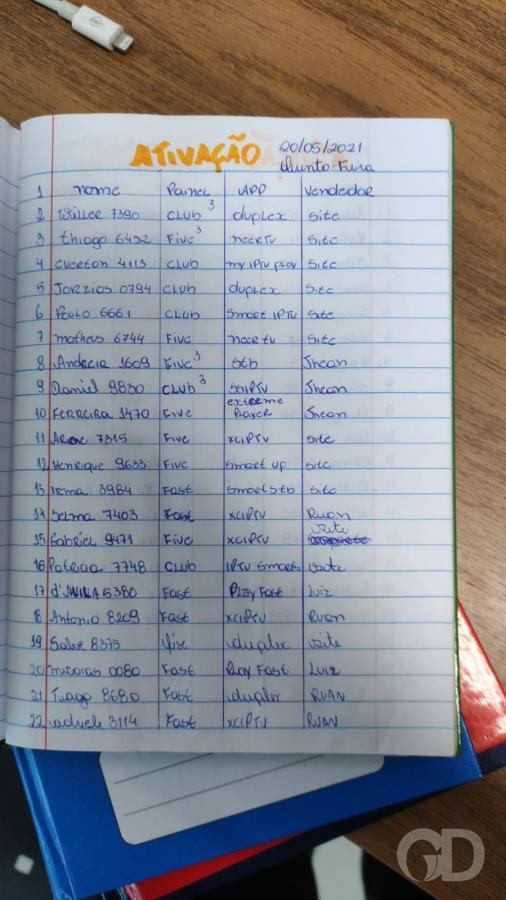 ATIVAÇÃO 20/05/2021
Quinta-Feira
1 nome Painel APP Vendedor
2 Willer 7390 CLUB 3 duplex site
3 thiago 6492 Five 3 neertv site
4 everton 4113 CLUB my iptv play site
5 0794 CLUB duplex site
6 Paulo 6661 CLUB smart IPTV site
7 matheus 6744 Five neertv site
8 Andreia 1609 Five 3 stb Jhean
9 Daniel 9830 CLUB 3 SSIPTV Jhean
10 Ferreira 1470 Five extreme Player Jhean
11 7315 Five xciptv site
12 Henrique 9633 Five smart up site
13 Irema 3984 Fast smart stb site
14 Selma 7403 Fast xciptv Ruan
15 Gabriel 9471 Five xciptv site
16 Patricia 7748 CLUB IPTV smarts site
17 d'Avila 5380 Fast Play Fast Luiz
18 Antonio 8209 Fast xciptv Ruan
19 8375 five duplex site
20 0080 Fast Play Fast Luiz
21 Tiago 8680 Fast duplex RUAN
22 3114 Fast XCIPTV RUAN
GD